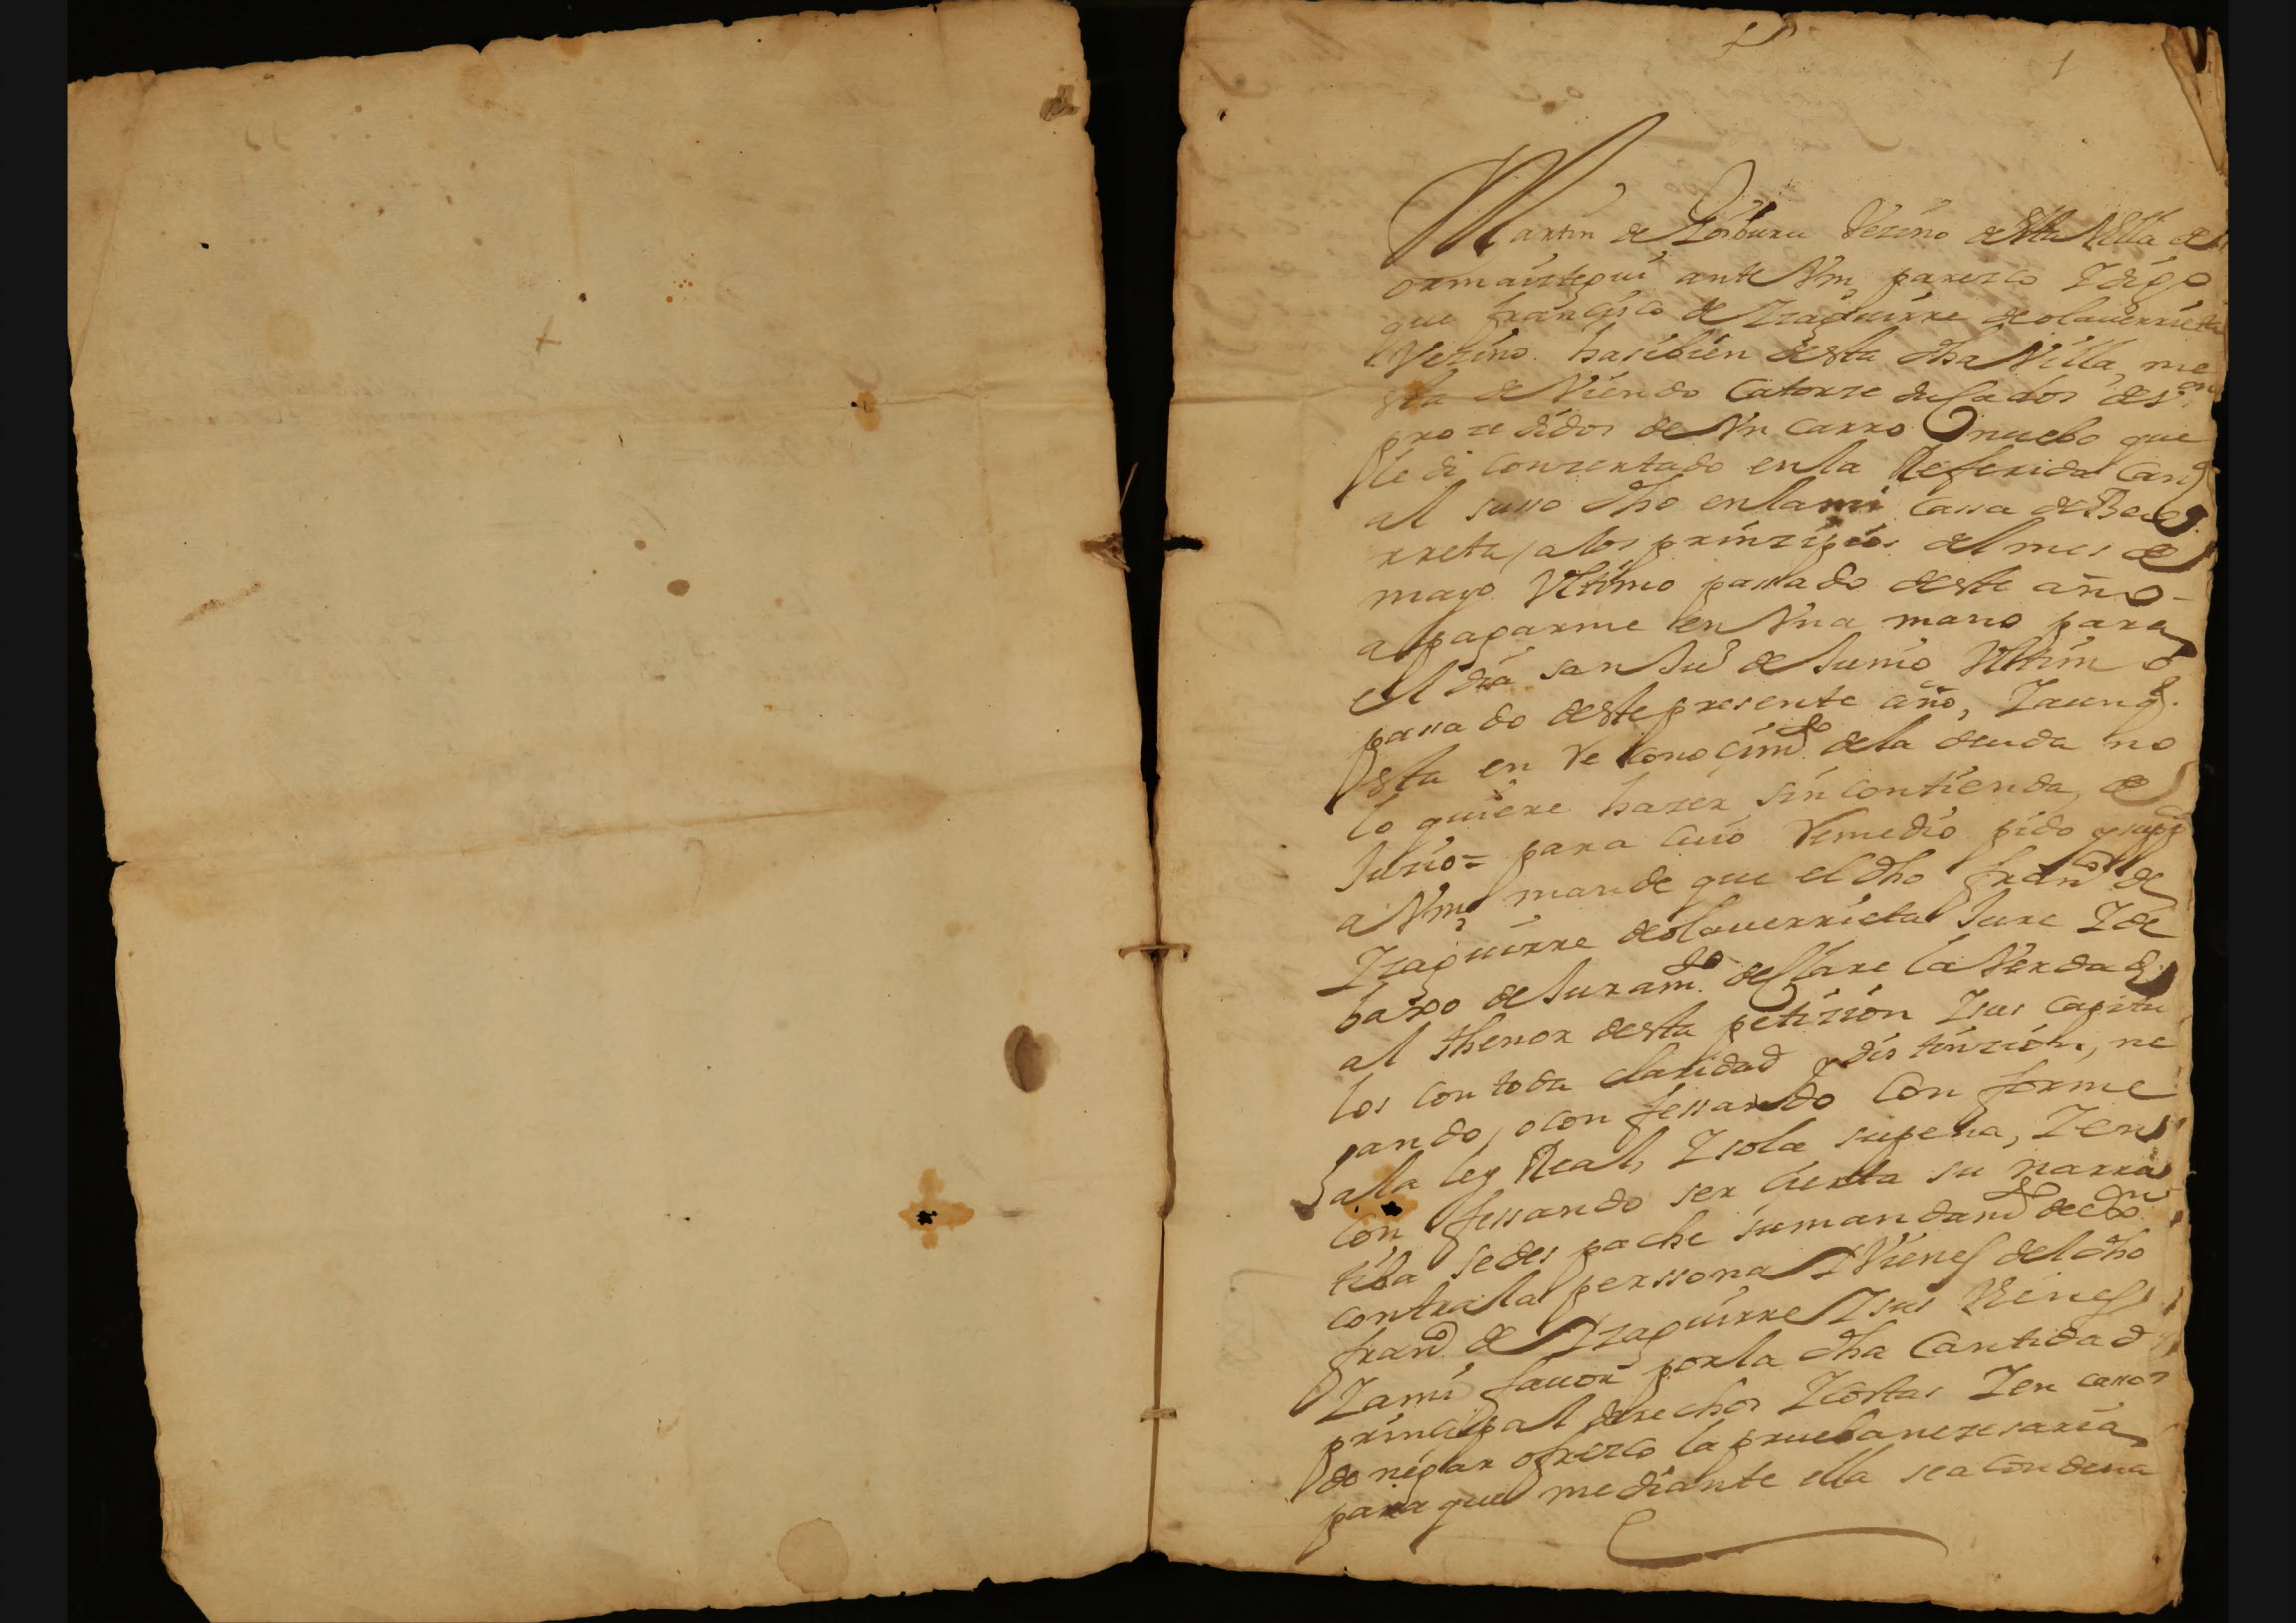 1
Martin de Zorburu Vezino desta Villa de
ormaiztegui ante Vm parezco Y digo
que francisco de Yzaguirre de olauerrieta
Vezino hasibien desta dha Villa, me
esta deViendo Catorze duCados de Von
prozedidos de Vn carro nuebo que
le di conzertado en la Referida Cand
al suso dho en la mi Cassa de
rreta, a los prinzipios del mes de
mayo Vltimo passado deste año
a pagarme en Vna mano para
el dia san Juo de Junio Vltimo
passado deste presente año, Y aunq.
esta en Reconoçimto de la deuda no
lo quiere hazer sin contienda de
Juizio = para cuio Remedio pido y suppco
a Vm, mande que el dho franco de
Yzaguirre de olauerrieta Jure Y de
baxo de Juramto deClare la Verdad
al thenor desta petizion Y sus capitu
los con toda claridad y distinzion, ne
gando, o confessando Conforme
a la ley Real, Y so la su pena, Y en
confessando ser cierta su narra
tiba se despache su mandamto de exon
contra la perssona Y Vienes del dho
franco de Yzaguirre Y sus Vienes
Y a mi fauor por la dha Cantidad
principal derechos Y costas Y en casso
de negar ofrezco la prueba nezesaria
para que mediante ella sea condena